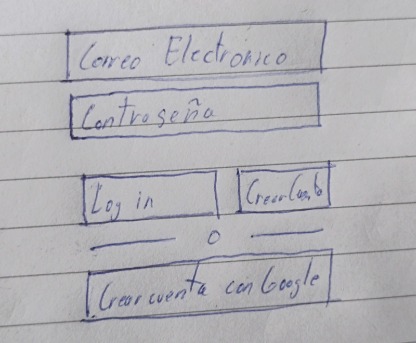 Correo Electronico
Contraseña
Log in Crear Cuenta
o
Crear cuenta con Google